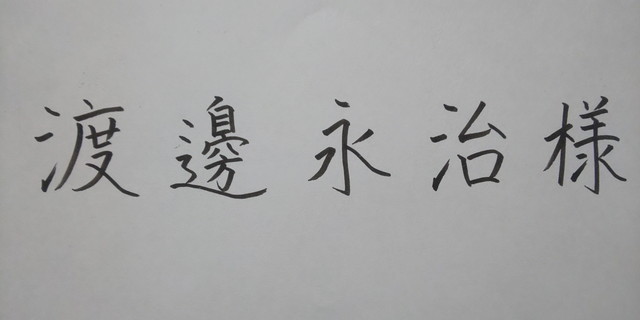 渡邊永治様